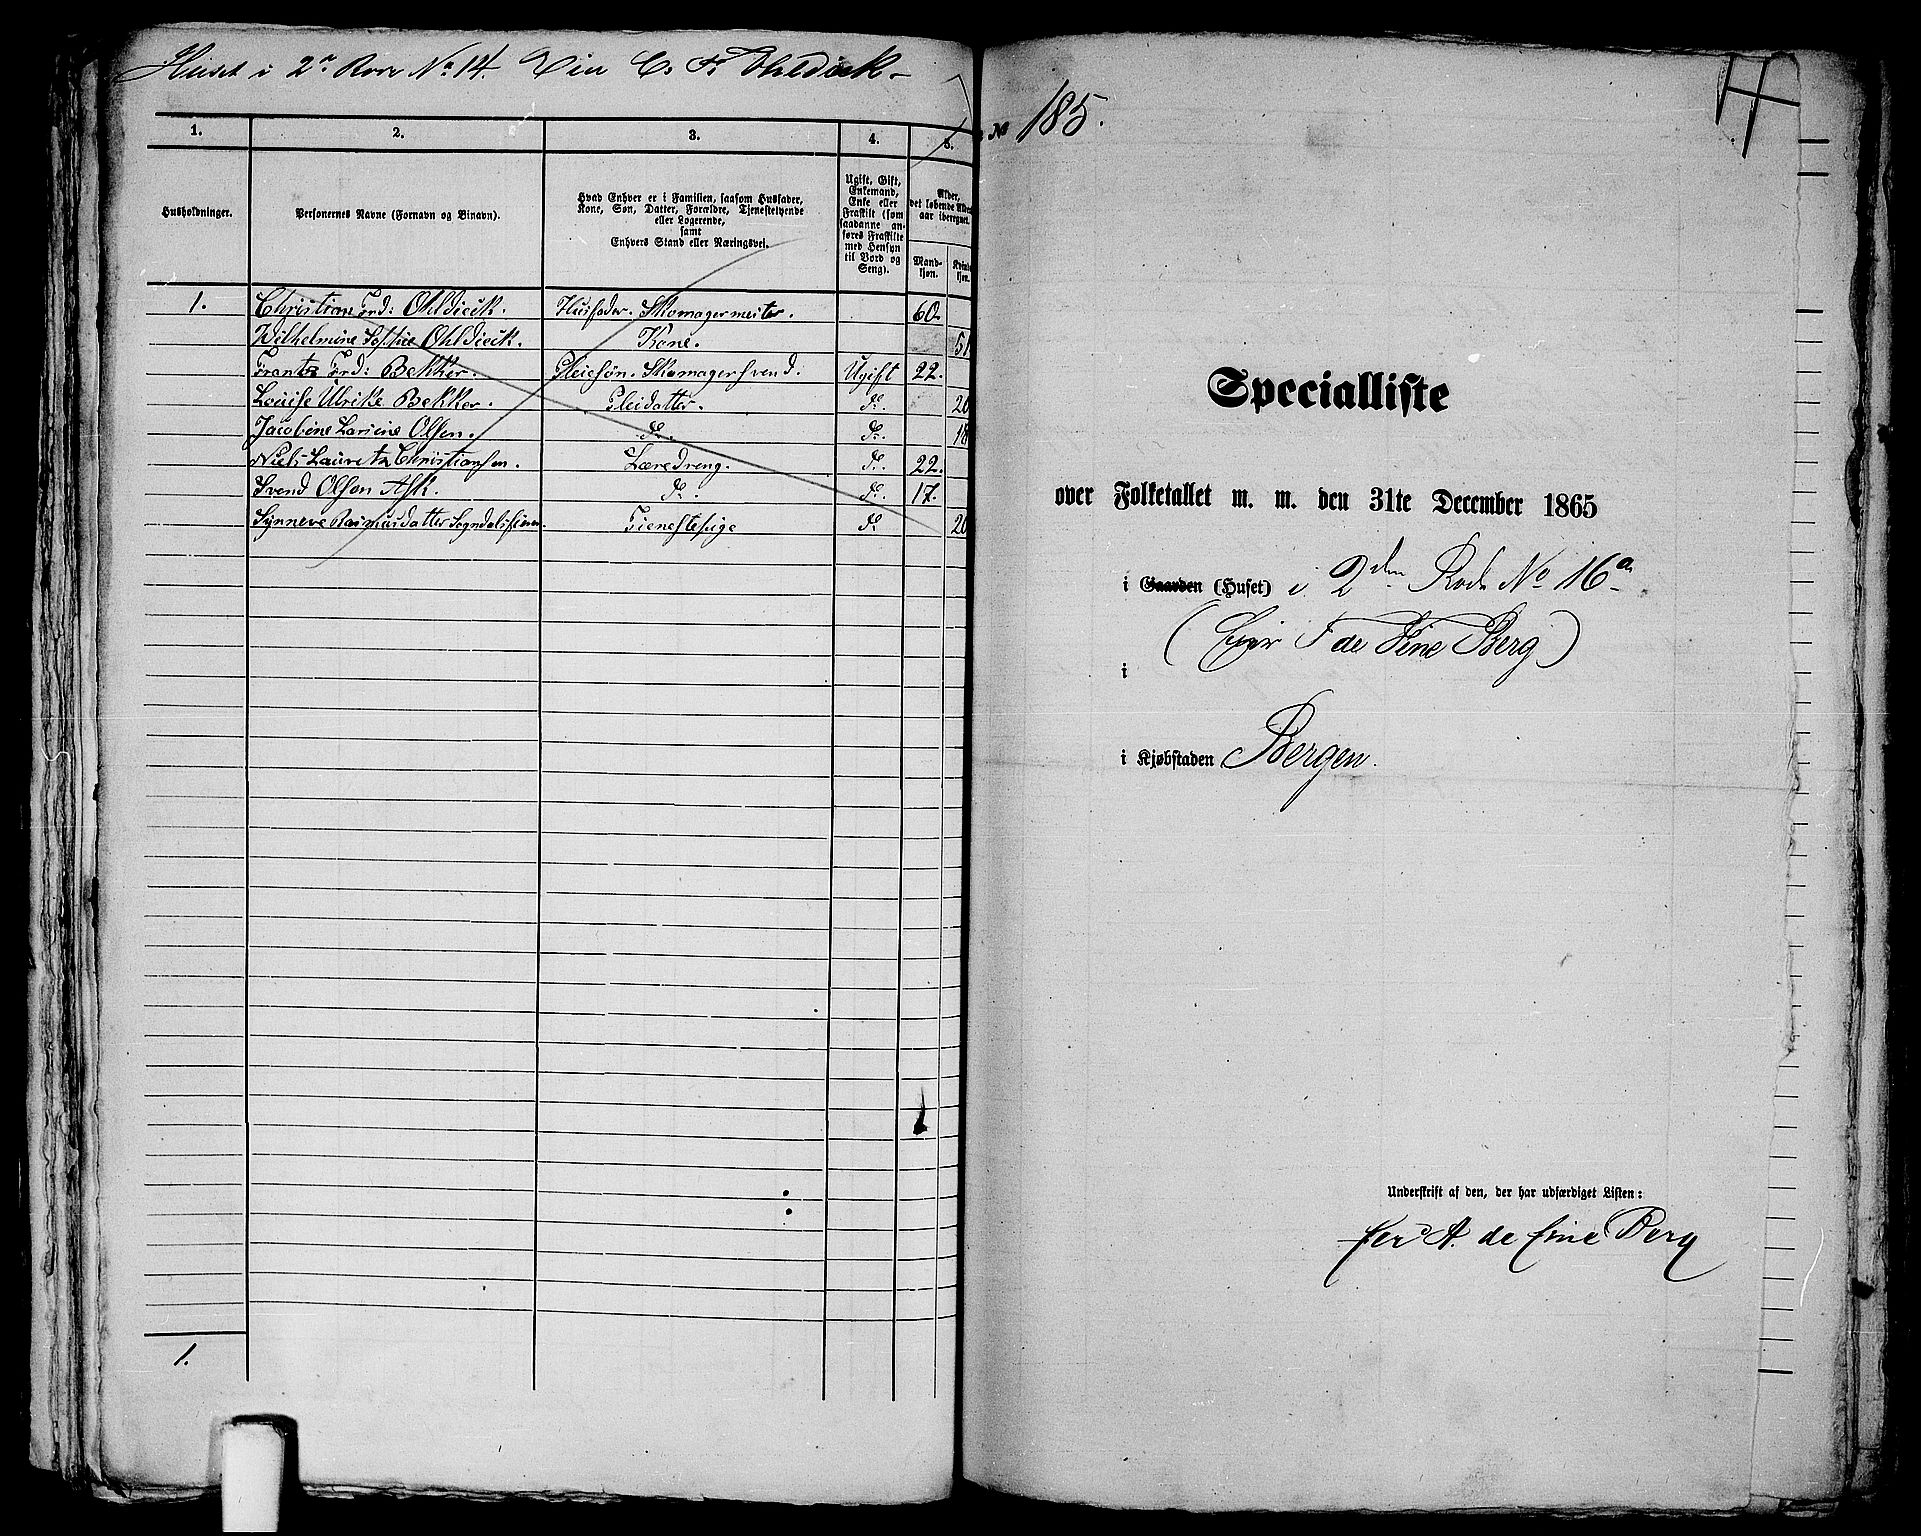 Huset i 2n Rode No 14. Eier C. F. Ohldieck
1.
2.
3.
4.
5.
Husholdninger.
Personernes Navne (Fornavn og Binavn).
Hvad Enhver er i Familien, saasom Husfader,
Kone, Søn, Datter, Forældre, Tjenestetyende
eller Logerende,
samt
Enhvers Stand eller Næringsvei.
Ugift, Gift,
Enkemand,
Enke eller
Fraskilt (som
saadanne an-
føres Fraskilte
med Hensyn
til Bord og
Seng).
Alder,
det løbende Alders-
aar iberegnet.
Mand-
kjøn.
Kvinde-
kjøn.
1. Christian Frd: Ohldieck. Husfader. Skomagermester. 60.
Wilhelmine Sophie Ohldieck. Kone. 51
Frantz Frd: Bekker. Pleiesøn. Skomagersvend. Ugift 22.
Louise Ulrike Bekker. Pleidatter. do. 20
Jacobine Larsine Olsen. do. do. 18
Niels Lauretz Christiansen. Læredreng. do. 22.
Svend Olson Ask. do. do. 17.
Synneve Rasmusdatter Sogndal Tieneste pige do 20
1.
No 185.
Specialliste
over Folketallet m. m. den 31te December 1865
i Gaarden (Huset) i 2den Rode No 16a
(Eier F de Fine Berg)
i
i Kjøbstaden Bergen.
Underskrift af den, der har udfærdiget Listen:
A. de fine Berg